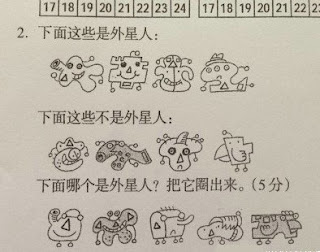 17 18 19 20 21 22 23 24 17 18 19 20 21 2
2. 下面这些是外星人：
下面这些不是外星人：
下面哪个是外星人？把它圈出来。（5 分）